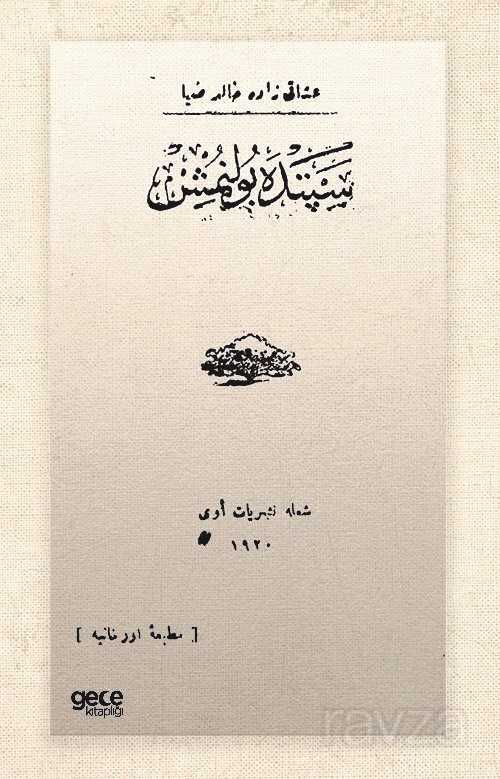 عشاقی زاده خالد ضیا
سپتده بولنمش
شعله نشریات أوی
١٩٢٠
[ مطبعهٔ اورخانیه ]
gece
kitaplığı
ravza